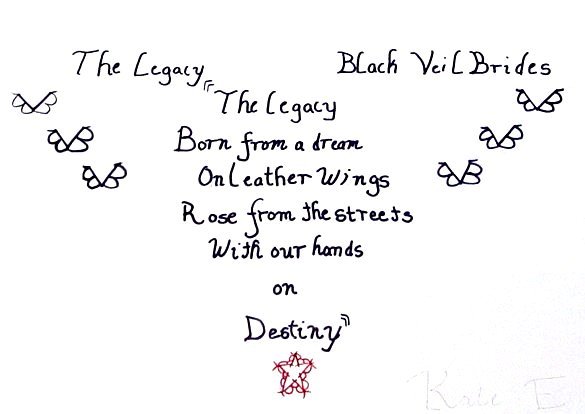 The Legacy Black Veil Brides
"The Legacy
Born from a dream
On Leather Wings
Rose from the streets
With our hands
on
Destiny"
Kate E